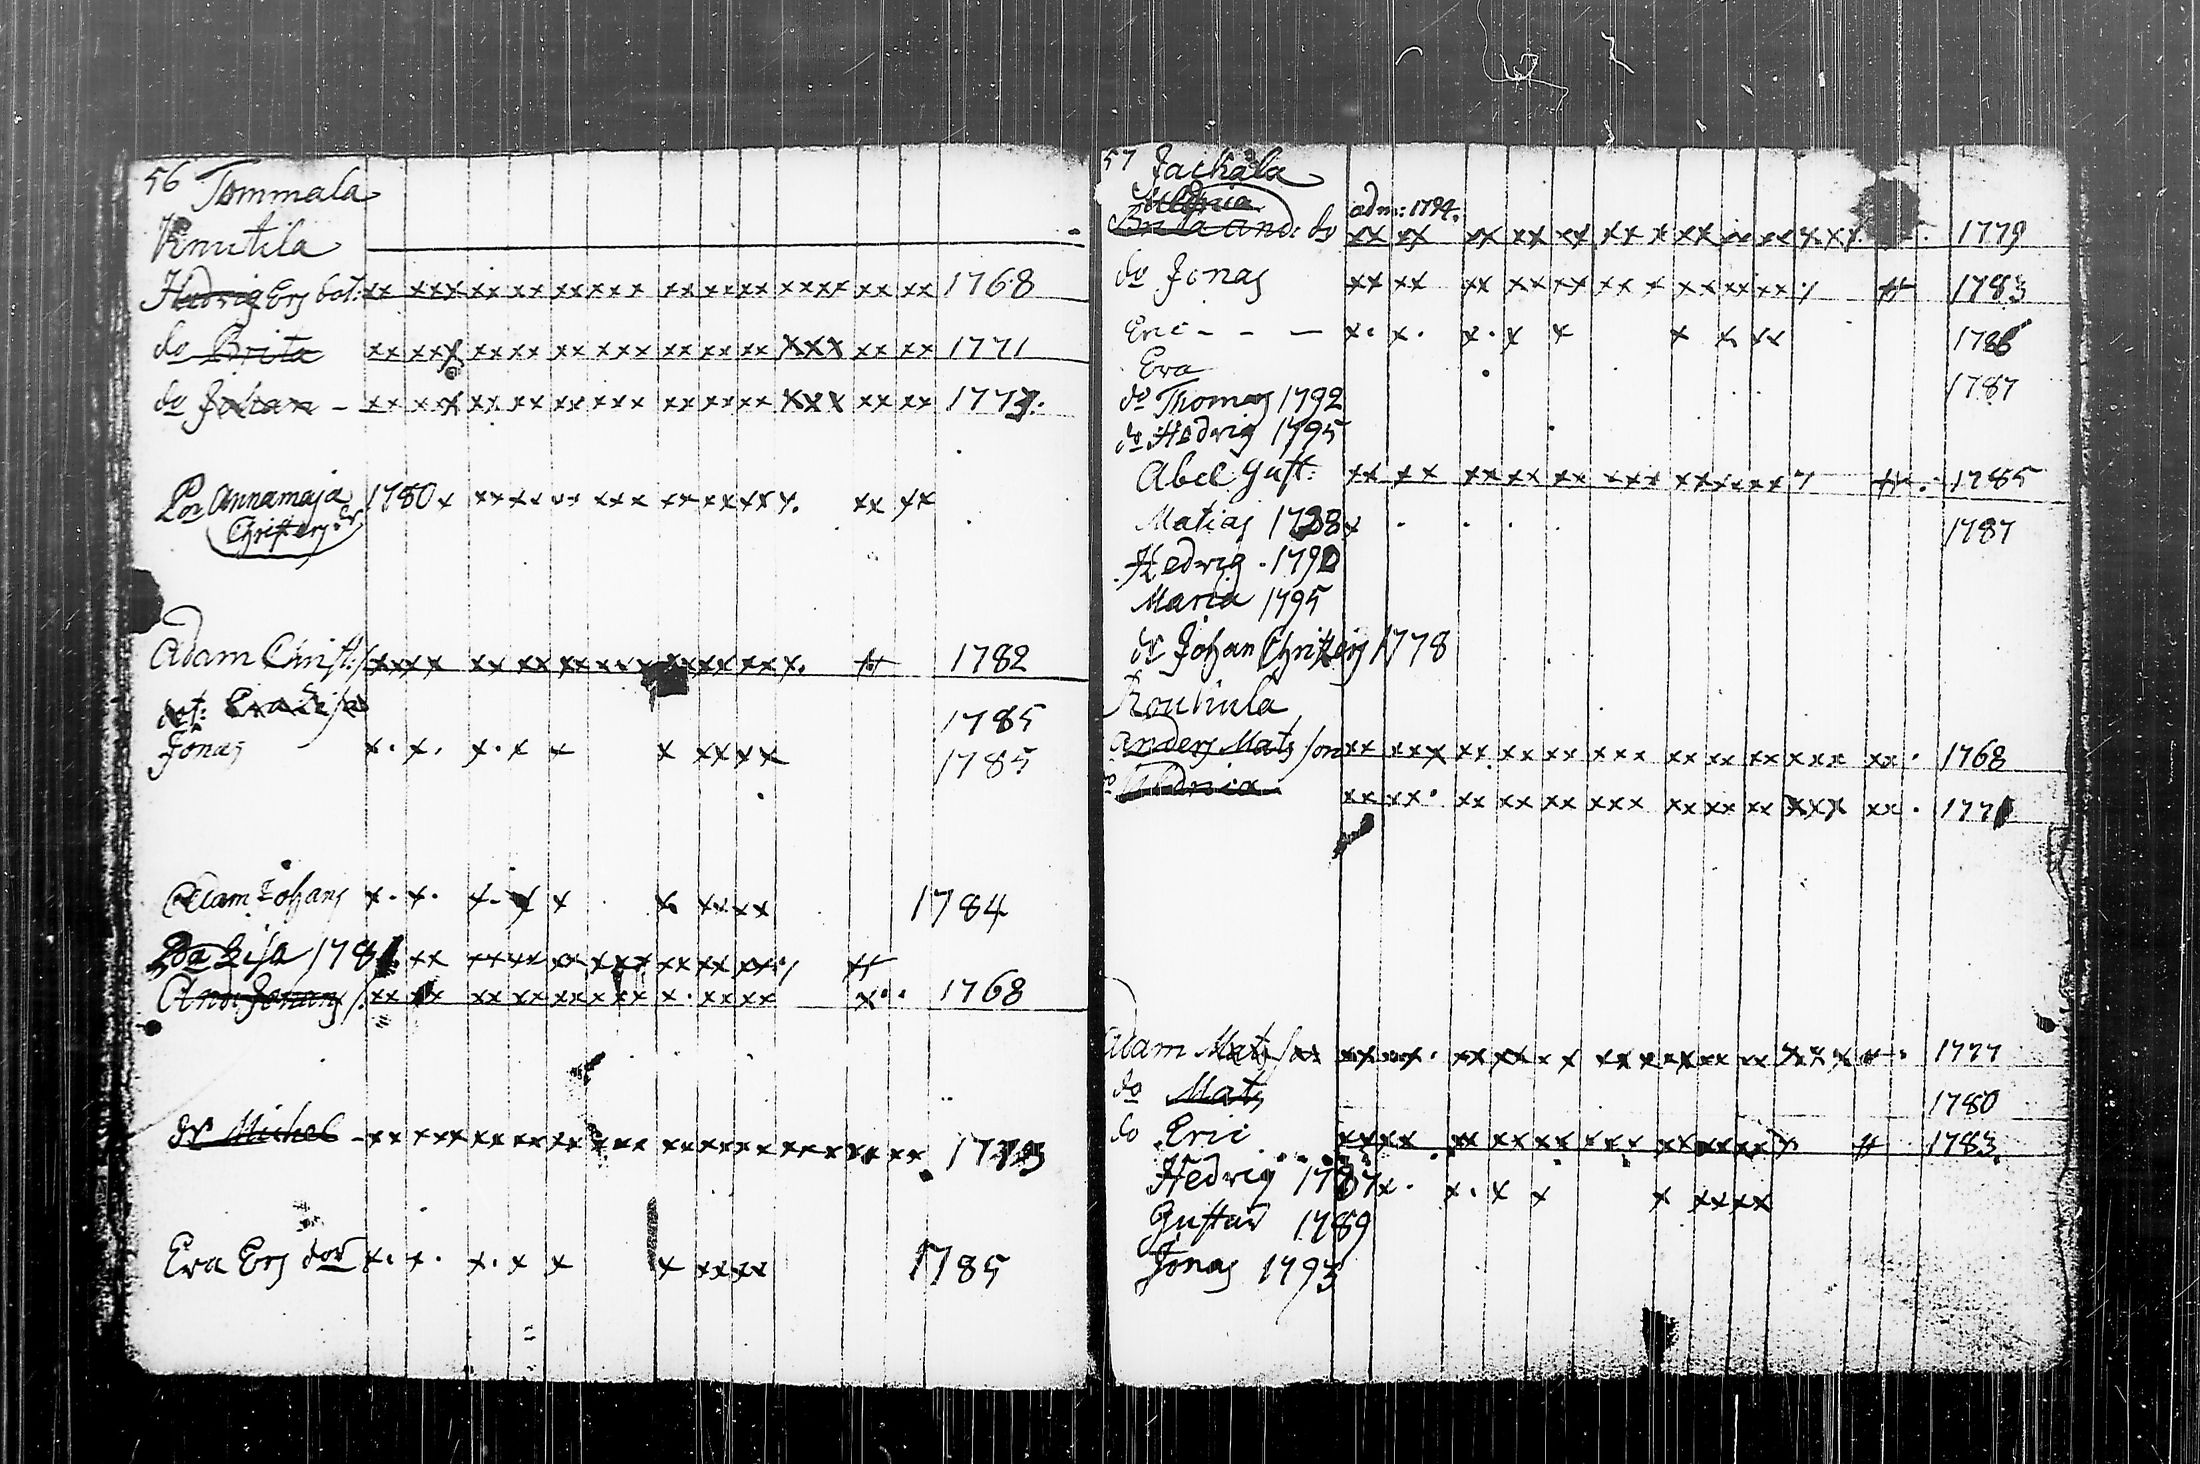 56 Tommala
Knutila
Hedvig Ers dot: xx xxx xx xx xx xxx xx xx xx xxxx xx xx 1768
do Brita xx xxx xx xx xx xxx xx xx xx xxx xx xx 1771
do Johan - xx xxx xx xx xx xxx xx xx xx xxx xx xx 177
Annamaja 1780 x xx xx xx xxx xx xx xx x. xx xx
Christers dr
Adam Christ: xx xx xx xx xx xxx xx xx xx x. 1782
1785
Jonas x. x. x. x x x xx xx 1785
Adam Johans x. x. x. x x x. xx xx 1784
Lisa 178 xx xx xx xx xxx xx xx xx
And: Johans xx xx xx xx xx xxx x. xx xx x.. 1768
dr Michel - xx xxx xx xx xx xxx xx xx xx xxx xx xx 17
Eva Ers dotr x. x. x. x x x xx xx 1785
57 Jackala
adm: 1794.
Brita And: xx xx xx xx xx xx x xx xx xx x xx 1779
do Jonas xx xx xx xx xx xx x xx xx xx 1783
Eric - - - x. x. x. x x x x. xx 178
Eva 1787
do Thomas 1792
do Hedvig 1795
Abel Gust: xx xx xx xx xx xxx xx xx xx 1785
Matias 1788 x 1787
Hedvig . 179
Maria 1795
dr Johan Christers 1778
Rouhula
Anders Mats son xx xxx xx xx xx xxx xx xx xx xxx xx . 1768
xx xx. xx xx xx xxx xx xx xx xxx xx . 177
Adam Mats xx xx. xx xx x x xx x xx xx xx xx x 1777
do Mats 1780
do Eric xx xx xx xx xx xxx xx xx xx x. 1783.
Hedvig 1787 x. x. x x x xx xx
Gustav 1789
Jonas 1793